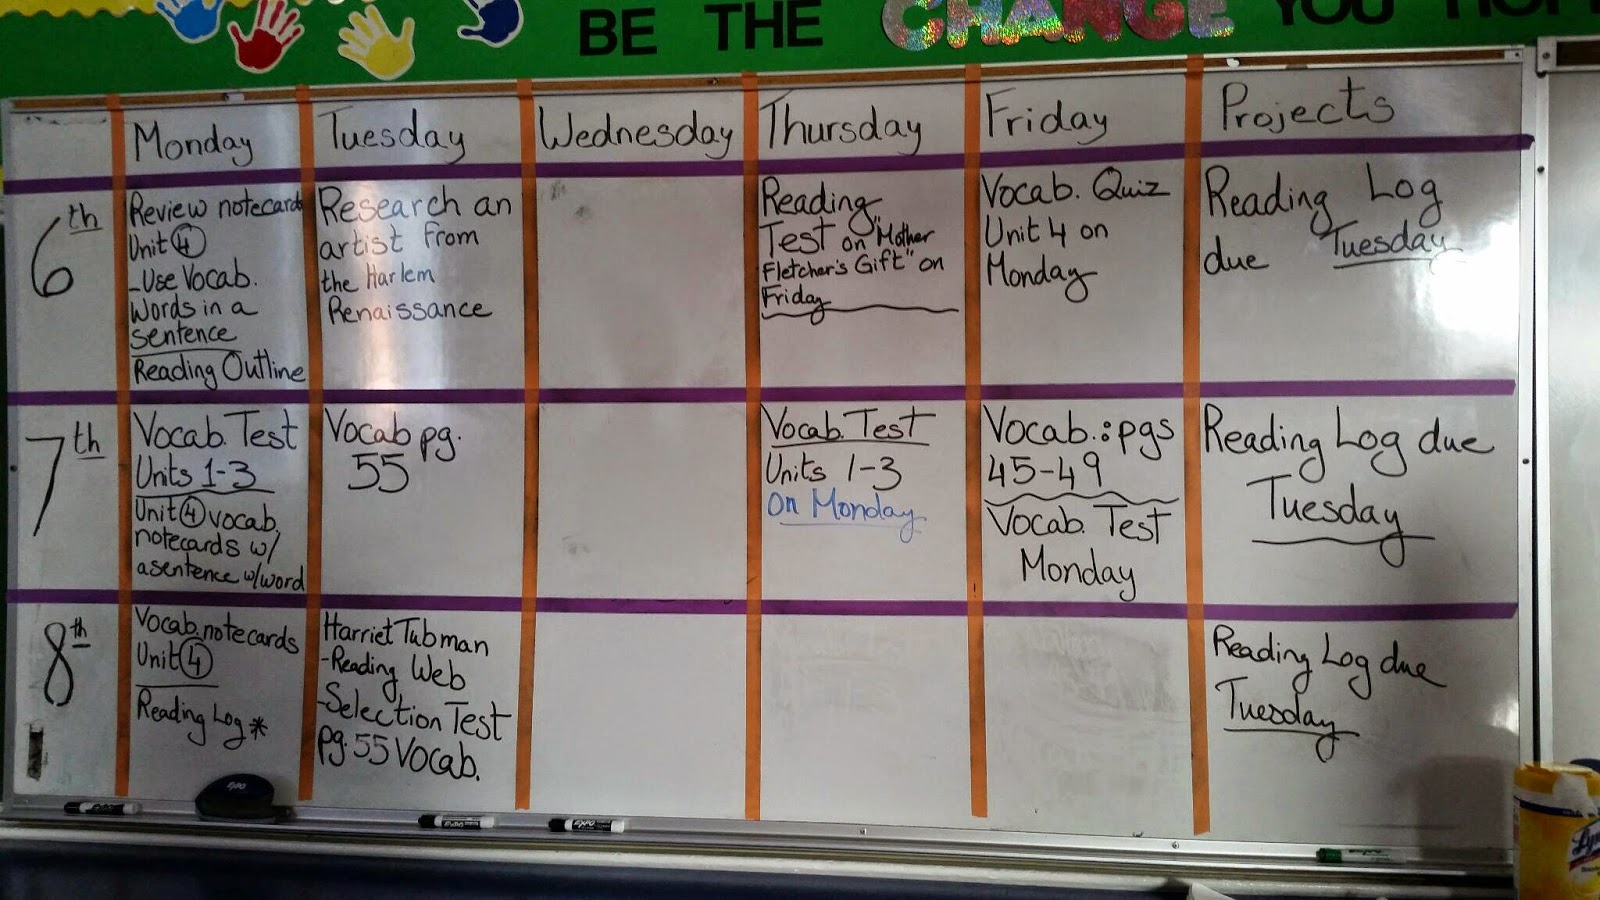 BE THE CHANGE YOU
Monday
Tuesday
Wednesday
Thursday
Friday
Projects
6th
Review notecards
Unit 4
-Use Vocab.
Words in a
sentence
Reading Outline
Research an
artist from
the Harlem
Renaissance
Reading
Test on "Mother
Fletcher's Gift" on
Friday
Vocab. Quiz
Unit 4 on
Monday
Reading Log
due Tuesday
7th
Vocab. Test
Units 1-3
Unit 4 vocab.
notecards w/
a sentence w/word
Vocab pg.
55
Vocab. Test
Units 1-3
on Monday
Vocab.: pgs
45-49
Vocab. Test
Monday
Reading Log due
Tuesday
8th
Vocab. notecards
Unit 4
Reading Log *
Harriet Tubman
-Reading Web
-Selection Test
pg. 55 Vocab.
Reading Log due
Tuesday
EXPO
EXPO
EXPO